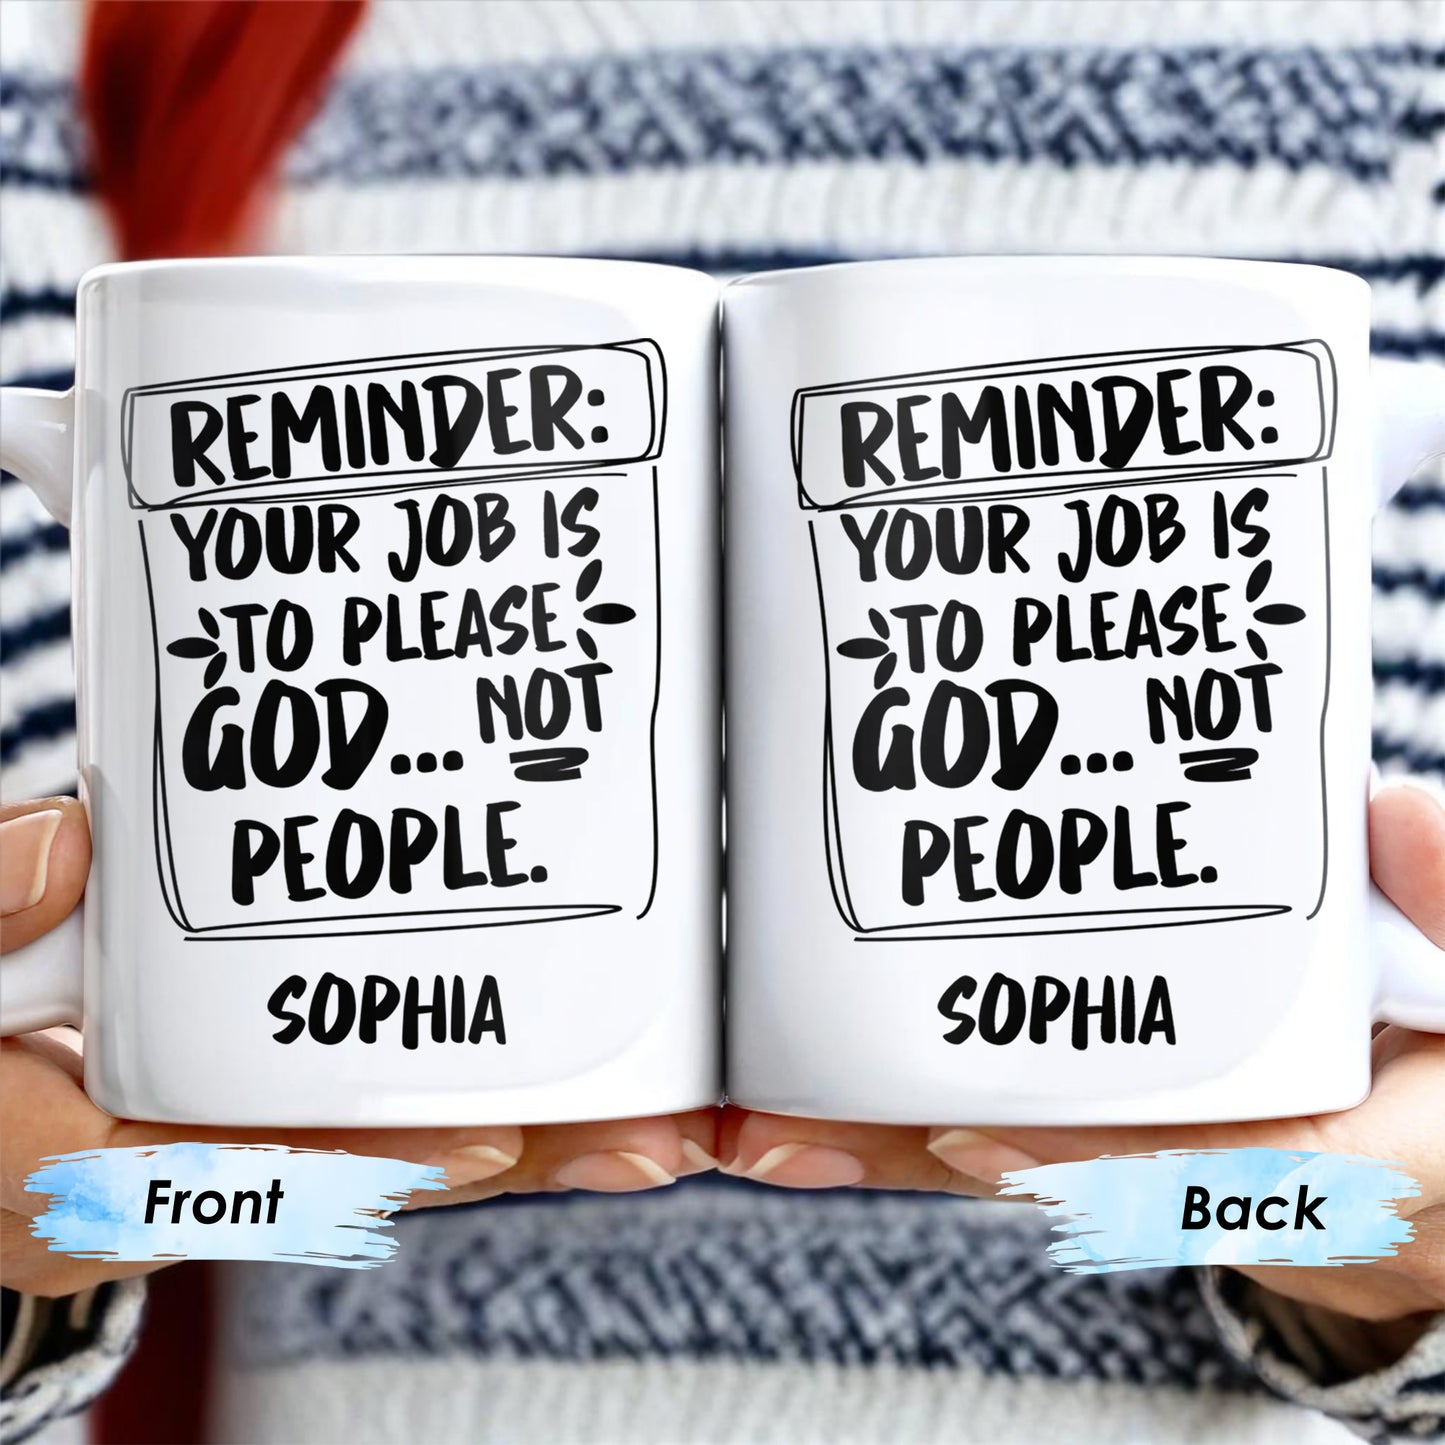 REMINDER:
YOUR JOB IS
TO PLEASE
GOD... NOT
PEOPLE.
SOPHIA
REMINDER:
YOUR JOB IS
TO PLEASE
GOD... NOT
PEOPLE.
SOPHIA
Front
Back